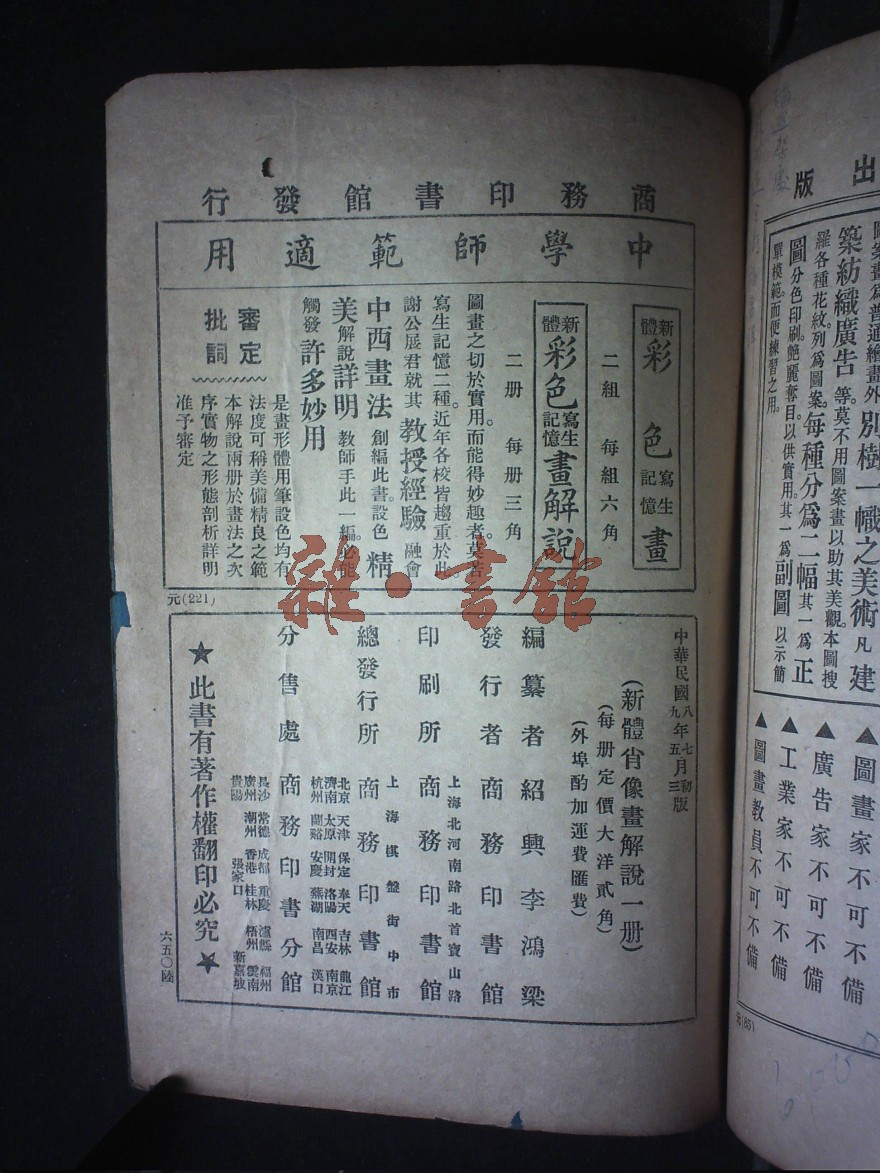 商務印書館發行
中學師範適用
新體彩色寫生記憶畫
二組 每組六角
新體彩色寫生記憶畫解說
二册 每册三角
圖畫之切於實用。而能得妙趣者。莫若
寫生記憶二種。近年各校皆趨重於此。
謝公展君就其教授經驗融會
中西畫法創編此書設色精
美解說詳明教師手此一編。必能
觸發許多妙用
審定批詞
是畫形體用筆設色均有
法度可稱美備精良之範
本解說兩册於畫法之次
序實物之形態剖析詳明
准予審定
元(221)
中華民國八年七月初版
九年五月三版
(新體肖像畫解說一册)
(每册定價大洋貳角)
(外埠酌加運費匯費)
編纂者 紹興李鴻梁
發行者 商務印書館
上海北河南路北首寶山路
印刷所 商務印書館
上海棋盤街中市
總發行所 商務印書館
北京 天津 保定 奉天 吉林 龍江
濟南 太原 開封 洛陽 西安 南京
杭州 蘭谿 安慶 蕪湖 南昌 漢口
分售處 商務印書分館
長沙 常德 成都 重慶 瀘縣 福州
廣州 潮州 香港 桂林 梧州 雲南
貴陽 張家口 新嘉坡
★此書有著作權翻印必究★
六五〇陸
雜·書館
出版
圖案畫爲普通繪畫外別樹一幟之美術凡建
築紡織廣告等莫不用圖案畫以助其美觀。本圖搜
羅各種花紋。列爲圖案。每種分爲二幅其一爲正
圖分色印刷。艷麗奪目。以供實用。其一爲副圖以示簡
單模範。而便練習之用。
▲圖畫家不可不備
▲廣告家不可不備
▲工業家不可不備
▲圖畫教員不可不備
元(85)